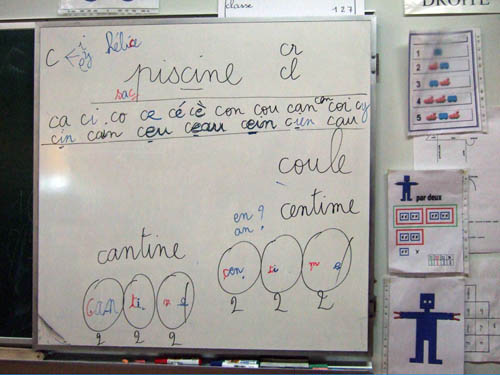 classe
127
DROITE
C i e y Hélice
cr
cl
piscine
sac
ca ci co ce cé cè con cou can coi cy
cin cam ceu ceau cein cien cau
coule
en ?
an ?
centime
cantine
cen ti m e
2 2 2
can ti n e
2 2 2
1
2
3
4
5
par deux